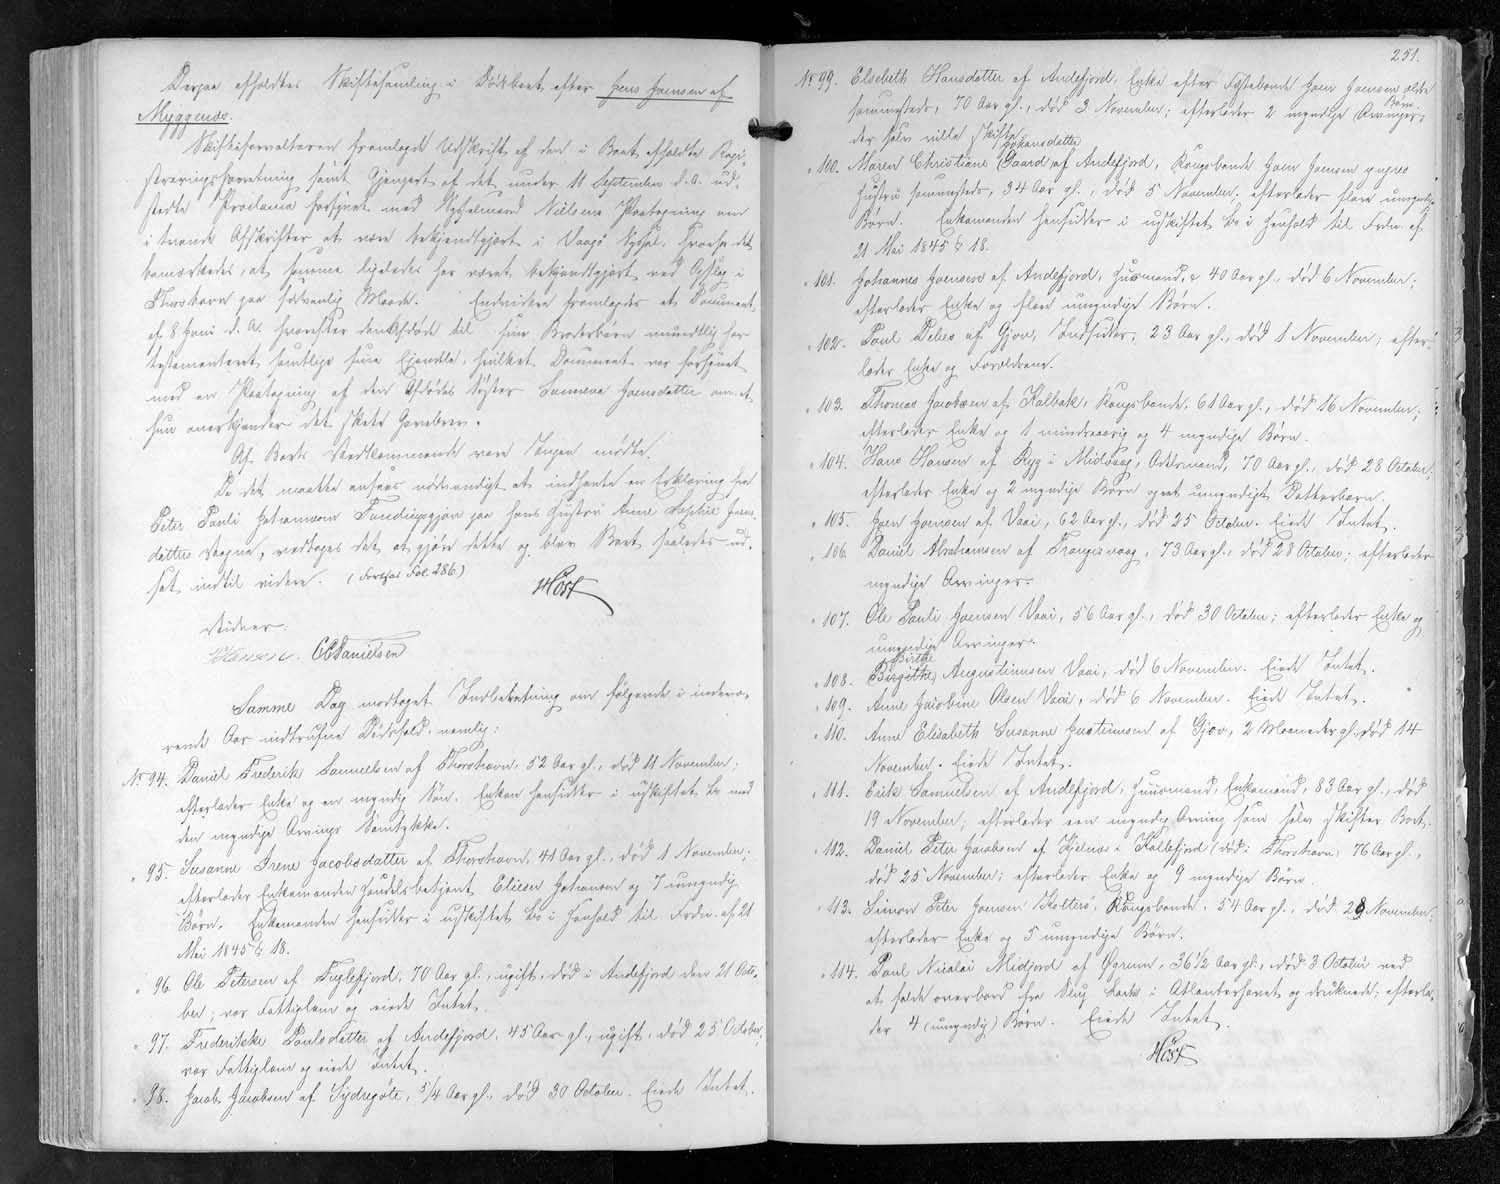 Derpaa afholdtes Skiftesamling i Dødsboet efter Jens Joensen af
Myggenæs.
Skifteforvalteren fremlagde Udskrift af den i Boet afholdte Regi-
streringsforretning samt Gjenpart af det under 11 September d. A. ud-
stedte Proclama forsynet med Sysselmand Nielsens Paategning om
i tvende Afskrifter at være bekjendtgjort i Vaagø Syssel, hvorhos det
bemærkedes, at samme ligeledes har været bekjendtgjort ved Opslag i
Thorshavn paa sædvanlig Maade. Endvidere fremlagdes et Document
af 8 Juni d. A. hvorefter den Afdøde til sine Broderbørn mundtlig har
testamenteret samtlige sine Ejendele, hvilket Document var forsynet
med en Paategning af den Afdødes Søster Sunneva Joensdatter om at
hun anerkjender det skete Gavebrev.
Af Boets Vedkommende vare Ingen mødte.
Da det maatte ansees nødvendigt at indhente en Erklæring fra
Peter Pauli Johannesen paa hans Hustru Anne Sophie Joens-
datters Vegne, vedtoges det at gjøre dette og blev Boet saaledes ud-
sat indtil videre. (Fortsat Fol. 286.)
Høst
Vidner:
Hansen. C. Danielsen
Samme Dag modtoget Indberetning om følgende i indevæ-
rende Aar indtrufne Dødsfald, nemlig:
No 94. Daniel Frederik Samuelsen af Thorshavn, 52 Aar gl., død 11 November;
efterlader Enke og en myndig Søn. Enken hensidder i uskiftet Bo med
den myndige Arvings Samtykke.
" 95. Susanne Irene Jacobsdatter af Thorshavn, 41 Aar gl., død 1 November;
efterlader Enkemanden Handelsbetjent Eliesen Johansen og 7 umyndig
Børn. Enkemanden hensidder i uskiftet Bo i Henhold til Frdn. af 21
Mai 1845 § 18.
" 96. Ole Petersen af Fuglefjord, 70 Aar gl., ugift, død i Andefjord den 21 Octo-
ber; var Fattiglem og eiede Intet.
" 97. Frederikke Paulsdatter af Andefjord, 45 Aar gl., ugift, død 25 October,
var Fattiglem og eiede Intet.
" 98. Jacob Jacobsen af Sydregøte, 5/4 Aar gl., død 30 October. Eiede Intet.
251.
No 99. Elsebeth Hansdatter af Andefjord, Enke efter Fæstebonde Joen Joensen ældre
sammesteds, 70 Aar gl., død 3 November; efterlader 2 myndige Arvinger, Børn,
der selv ville skifte.
" 100. Maren Christiane Johansdatter Gaard af Andefjord, Kongsbonde Joen Joensen yngres
Hustru sammesteds, 34 Aar gl., død 5 November. efterlader flere umyndige
Børn. Enkemanden hensidder i uskiftet Bo i Henhold til Frdn. af
21 Mai 1845 § 18.
" 101. Johannes Joensen af Andefjord, Huusmand, 40 Aar gl., død 6 November;
efterlader Enke og flere umyndige Børn.
" 102. Poul Debes af Gjov, Indsidder, 23 Aar gl., død 1 November; efter-
lader Enke og Forældrene.
" 103. Thomas Jacobsen af Kalbak, Kongsbonde, 61 Aar gl., død 16 November;
efterlader Enke og 1 mindreaarig og 4 myndige Børn.
" 104. Hans Hansen af Ryg i Midvaag, Odelsmand, 70 Aar gl., død 28 October,
efterlader Enke og 2 myndige Børn og et umyndigt Datterbarn.
" 105. Joen Joensen af Vaai, 62 Aar gl., død 25 October. Eiede Intet.
" 106. Daniel Abrahamsen af Trangisvaag, 73 Aar gl., død 28 October; efterlader
myndige Arvinger.
" 107. Ole Pauli Joensen Vaai, 56 Aar gl., død 30 October; efterlader Enke og
umyndige Arvinger.
" 108. Birgithe Birthe Augustinussen Vaai, død 6 November. Eiede Intet.
" 109. Anne Jacobine Olsen Vaai, død 6 November. Eiede Intet.
" 110. Anne Elisabeth Susanne Justinussen af Gjov, 2 Maaneder gl., død 14
November. Eiede Intet.
" 111. Eirik Samuelsen af Andefjord, Huusmand, Enkemand, 83 Aar gl., død
19 November; efterlader een myndig Arving som selv skifter Boet.
" 112. Daniel Peter Jacobsen af Hjelnæs i Kollefjord (død i Thorshavn, 76 Aar gl.,
død 25 November; efterlader Enke og 9 myndige Børn.
" 113. Simon Peter Joensen Kolterø, Kongsbonde. 54 Aar gl., død 28 November;
efterlader Enke og 5 umyndige Børn.
" 114. Paul Nicolai Midjord af Øgrum, 36 1/2 Aar gl., død 3 October ved
at falde overbord fra Slup Lark i Atlanterhavet og druknede; efterla-
der 4 (umyndig) Børn. Eiede Intet.
Høst